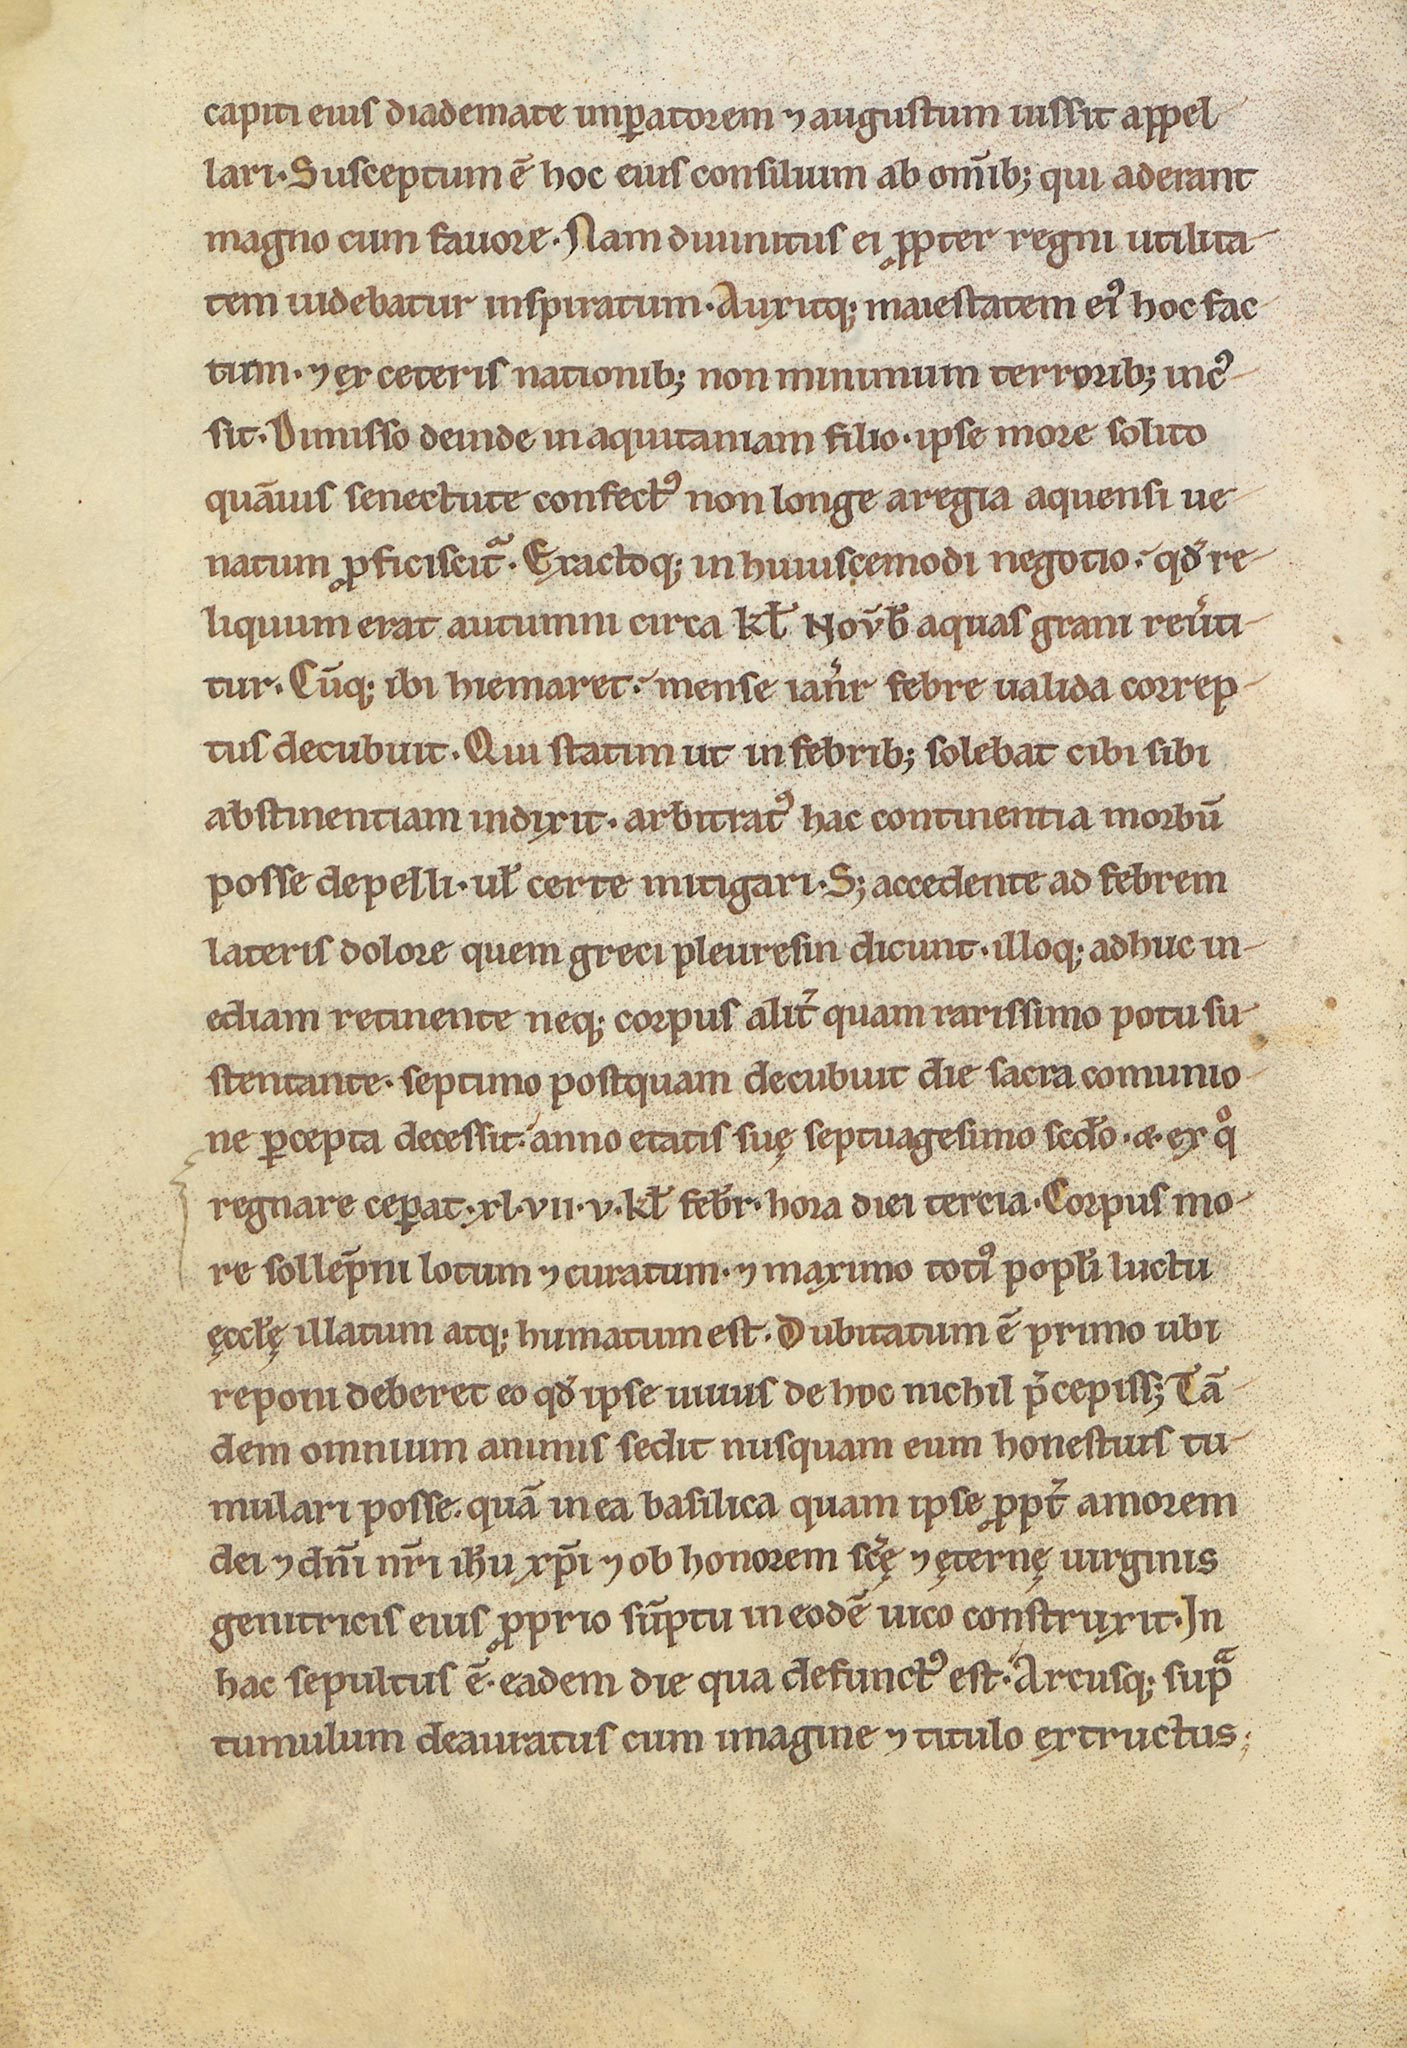 capiti eius diademate imꝑatorem ⁊ augustum iussit appel-
lari. Susceptum ē hoc eius consilium ab om̄ib; qui aderant
magno cum fauore. Nam diuinitus ei ꝓpter regni utilita-
tem uidebatur inspiratum. Auxitq; maiestatem ei᾽ hoc fac-
tum. ⁊ ex ceteris nationib; non minimum terrorib; inc᾽-
sit. Dimisso deinde in aquitaniam filio. ipse more solito
quāuis senectute confectꝰ non longe a regia aquensi ue-
natum ꝓficiscitᷓ. Exactoq; in huiuscemodi negotio. qđ re-
liquum erat autumni circa kł Nov̄b aquas grani reu᾽ti-
tur. Cūq; ibi hiemaret. mense ian᾽r febre ualida correp-
tus decubuit. Qui statim ut in febrib; solebat cibi sibi
abstinentiam indixit. arbitratꝰ hac continentia morbū
posse depelli. uł certe mitigari. S; accedente ad febrem
lateris dolore quem greci pleuresin dicunt. illoq; adhuc in-
ediam retinente neq; corpus alit᾽ quam rarissimo potu su-
stentante. septimo postquam decubuit die sacra comunio-
ne ꝑcepta decessit. anno etatis suę septuagesimo scđo. æ. ex qͦ
regnare ceꝑat. xl. vii. v. kł feb᾽r. hora diei tercia. Corpus mo-
re sollep̄ni lotum ⁊ curatum. ⁊ maximo toti᾽ popłi luctu
ęccłę illatum atq; humatum est. Dubitatum ē primo ubi
reponi deberet eo qđ ipse uiuus de hoc nichil p̄cepiss; Tā-
dem omnium animis sedit nusquam eum honestius tu-
mulari posse. quā in ea basilica quam ipse ꝓpt᾽ amorem
dei ⁊ dn̄i nr̄i ih̄u xp̄i ⁊ ob honorem sc̄ę ⁊ ęternę uirginis
genitricis eius ꝓprio sūptu in eodē uico construxit. In
hac sepultus ē. eadem die qua defunctꝰ est. Arcusq; supᷓ
tumulum deauratus cum imagine ⁊ titulo extructus;